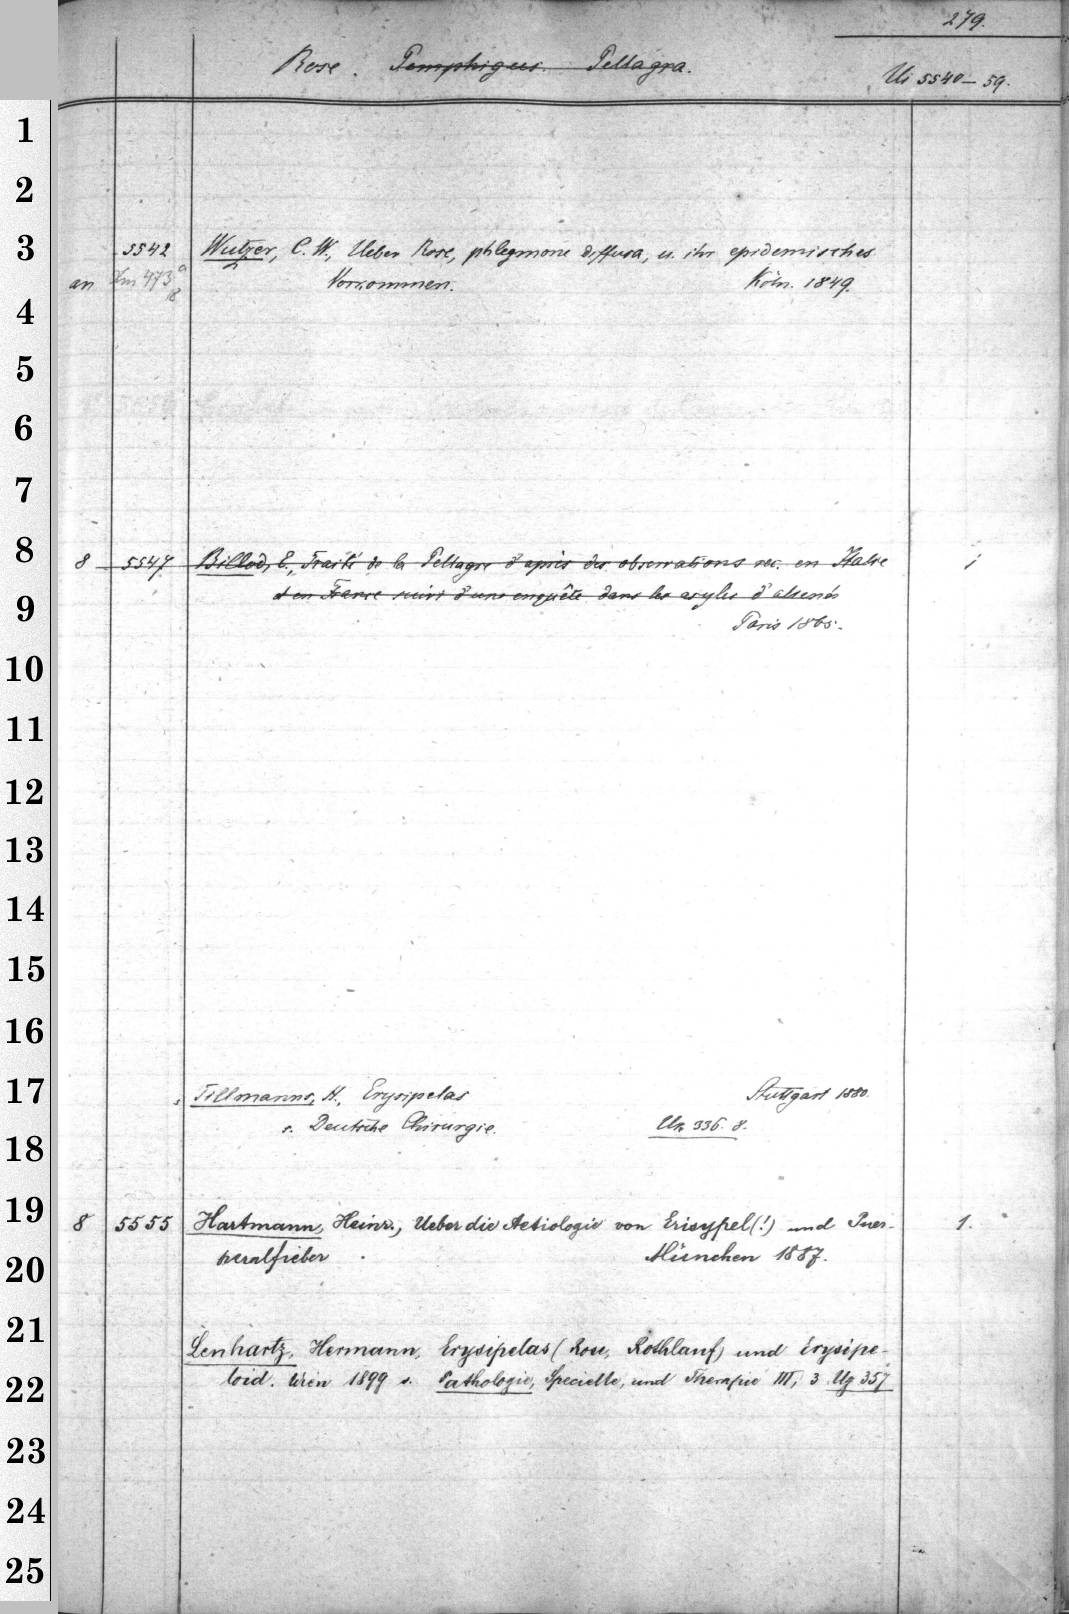 279.
Rose. Pemphigus. Pellagra.
Ui 5540-59.
1
2
3 5542 Wutzer, C. W., Ueber Rose, phlegmone diffusa, u. ihr epidemisches
an 473 Vorkommen. Köln. 1849.
4
5
6
7
8 8 5547 Billod, E., Traité de la Pellagre d'après des observations rec. en Italie 1
9 et en France suivi d'une enquête dans les asyles d'aliénés
Paris 1865.
10
11
12
13
14
15
16
17 Tillmanns, H., Erysipelas Stuttgart 1880.
18 s. Deutsche Chirurgie. Uk 336. 8.
19 8 5555 Hartmann, Heinr., Ueber die Aetiologie von Erisypel(!) und Puer- 1.
20 peralfieber München 1887.
21 Lenhartz, Hermann, Erysipelas (Rose, Rothlauf) und Erysipe-
22 loid. Wien 1899 s. Pathologie, Specielle, und Therapie III, 3 Ug 357
23
24
25